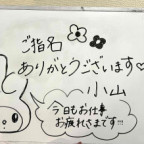 ご指名
ありがとうございます♡
小山
今日もお仕事
お疲れさまです!!!